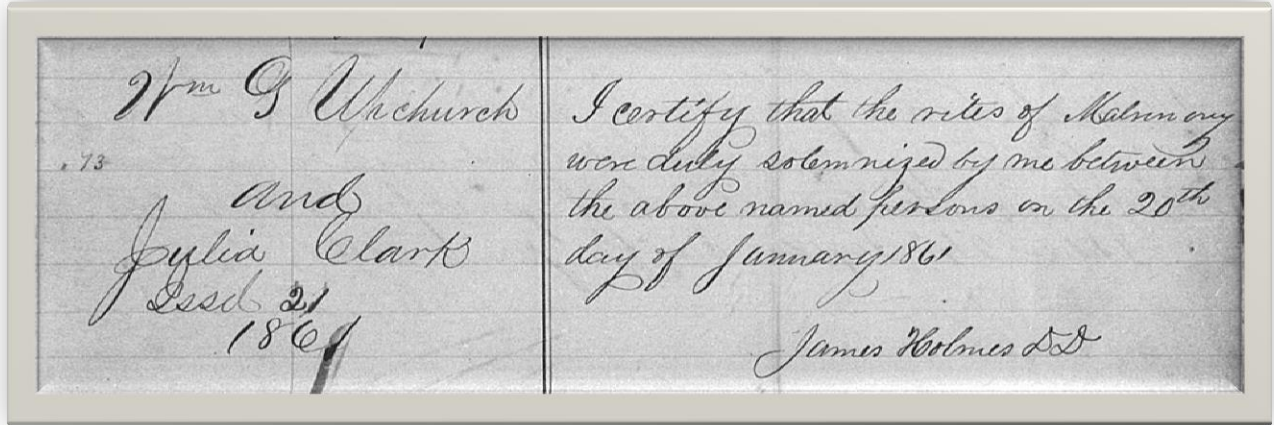 Wm G Uhchurch
.73
and
Julia Clark
Issd 21
1861
I certify that the rites of Matrimony
were duly solemnized by me between
the above named persons on the 20th
day of January 1861
James Holmes DD